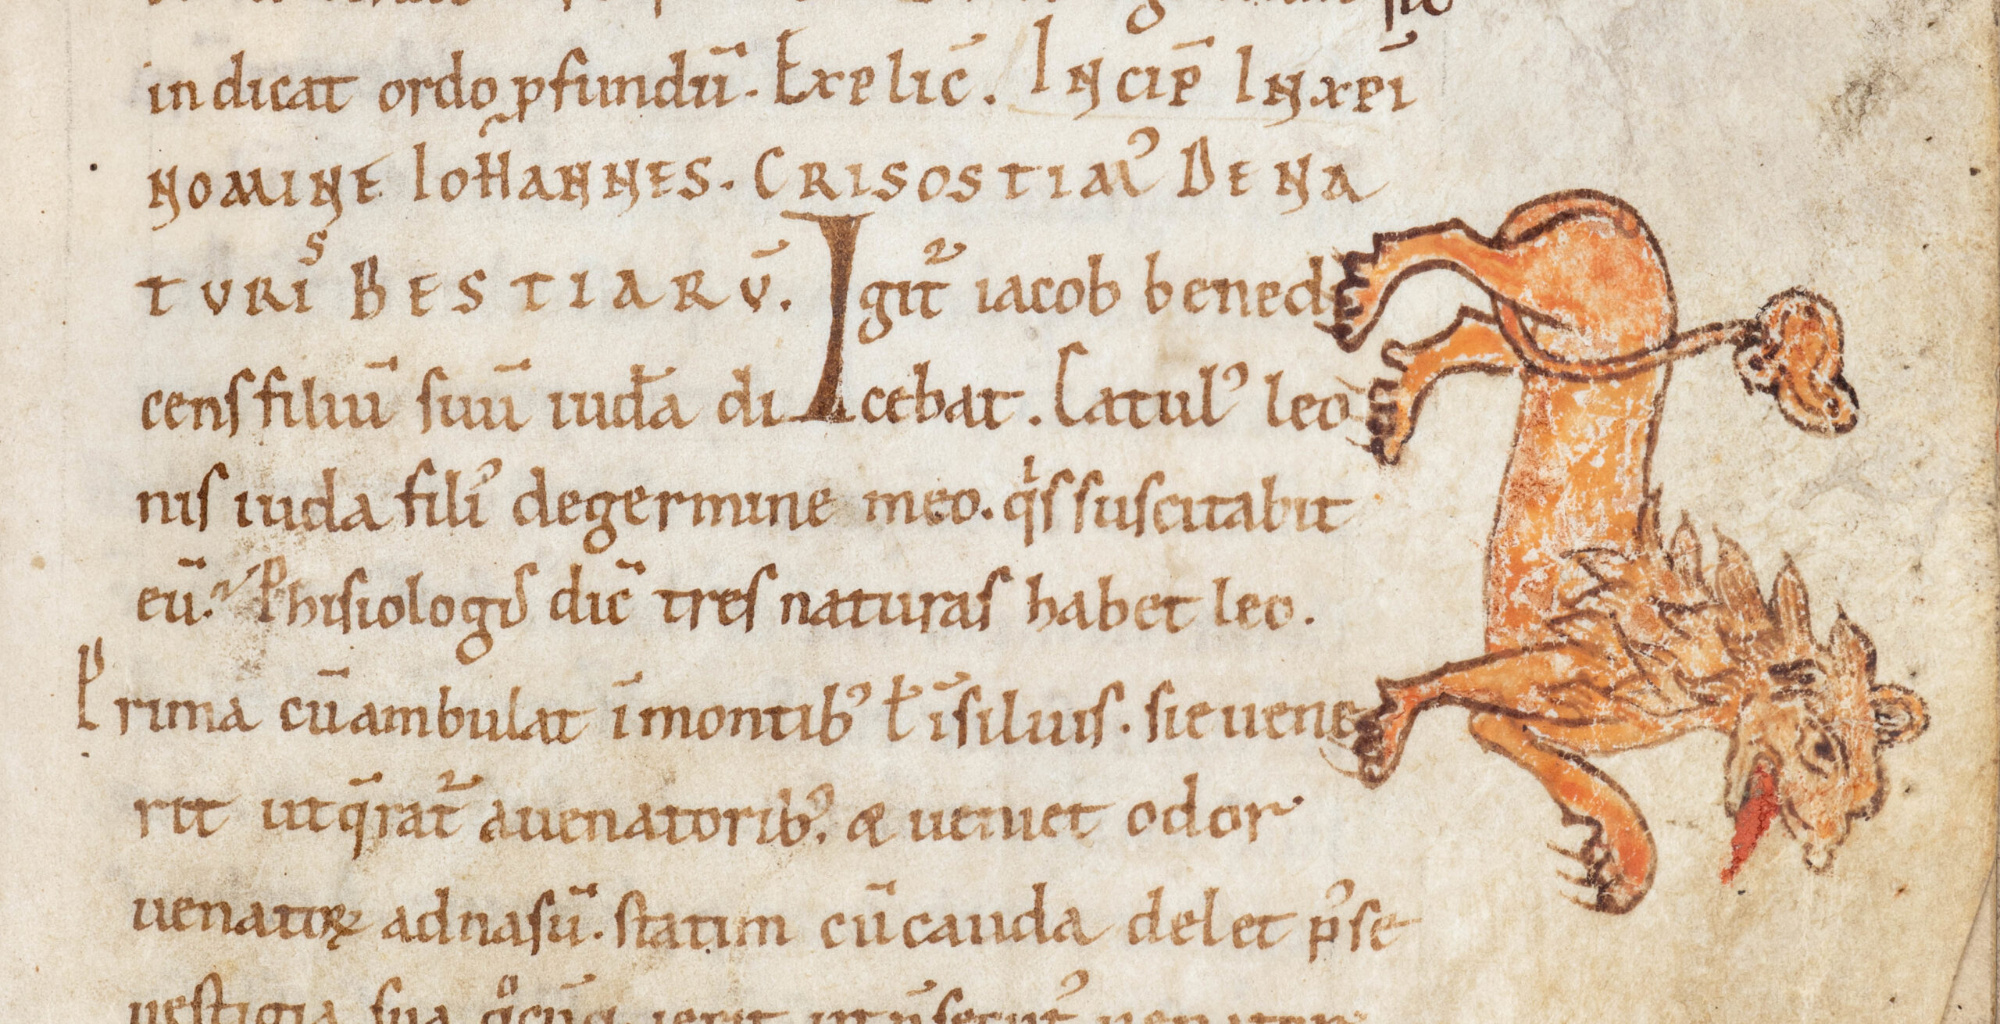 indicat ordo ꝓfundū. Explic̄. Incip̄ In xp̄i
nomine Ioh̄annes. Crisostiaꝰ De na
turis Bestiarū. Igit᷑ iacob bened
cens filiū suū iudā dicebat. Catulꝰ leo
nis iuda filiꝰ de germine meo. qͥs suscitabit
eū. Phisiologꝰ dic̄ tres naturas habet leo.
Prima cū ambulat ī montibꝰ ł ī siluis. si euene
rit ut q̄rat᷑ a uenatoribꝰ. & ueniet odor
uenatoꝝ ad nasū. statim cū cauda delet pꝰ se
uestigia sua